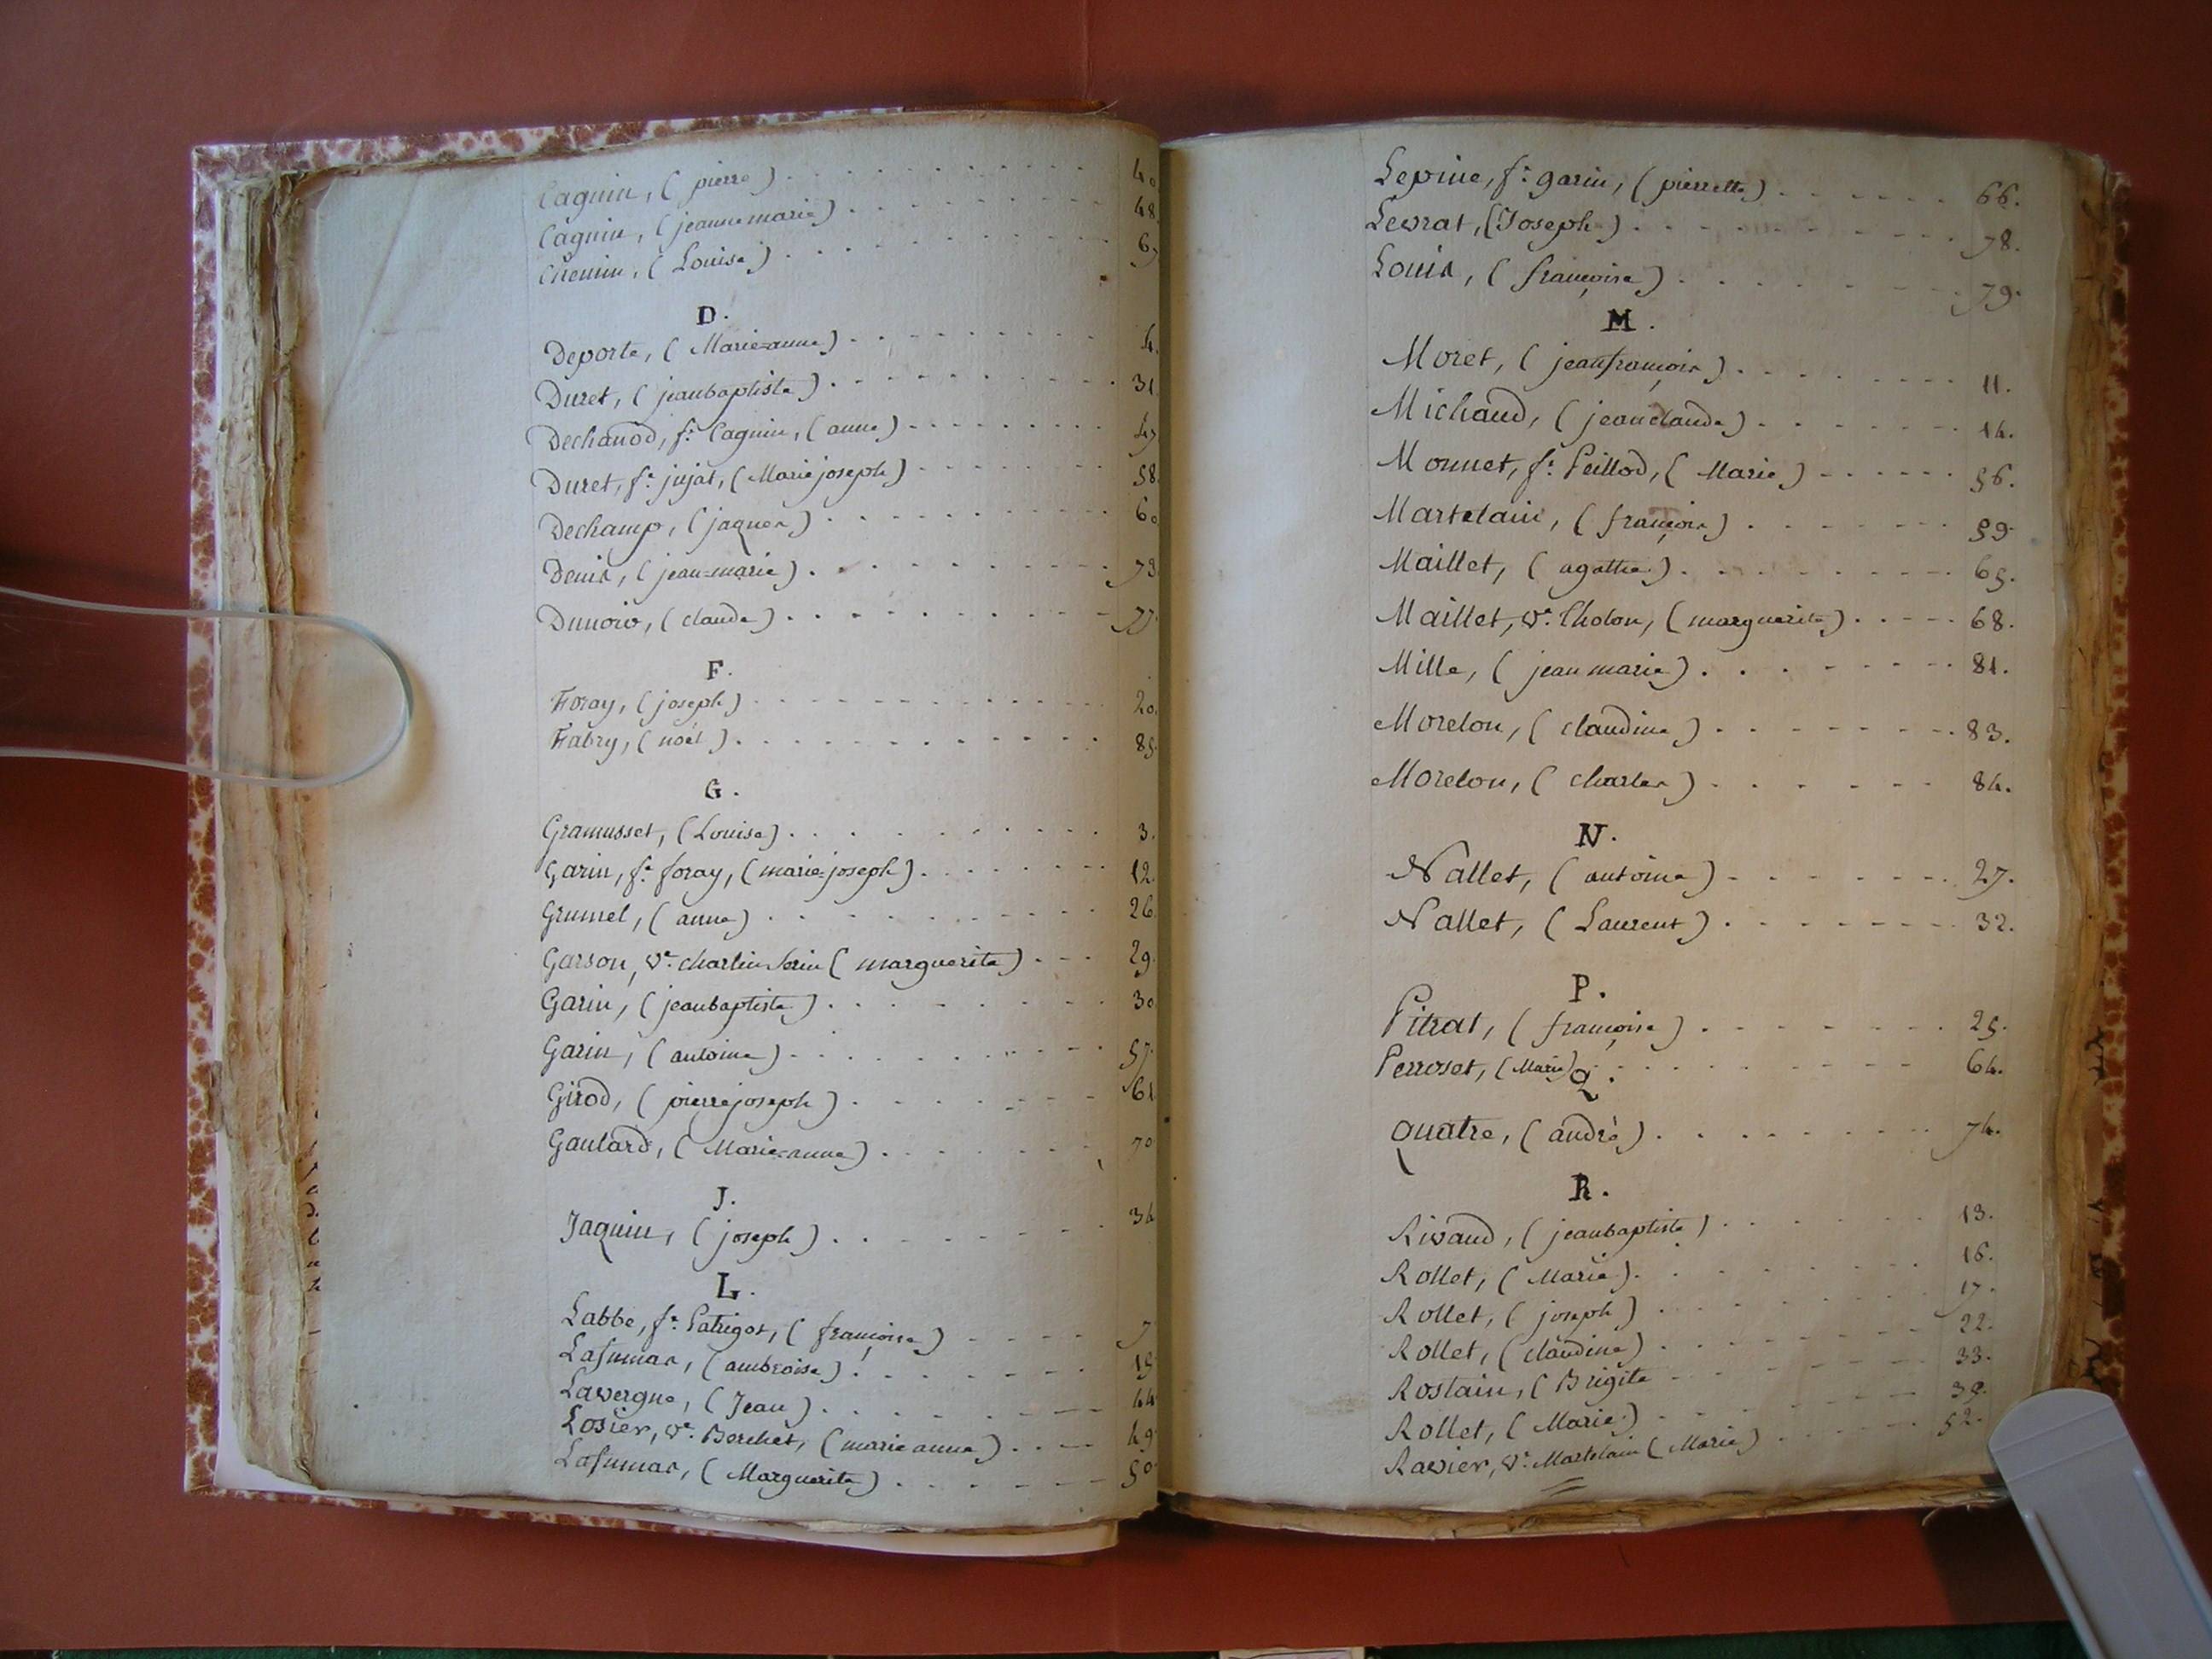 Cagnin, (pierre) 40
Cagnin, (jeanne marie) 48
Chemin, (Louise) 67
D.
Deporte, (Marie=anne) 4.
Duret, (jeanbaptiste) 31
Dechanod, fe. Cagnin, (anne) 47
Duret, fe. jujat, (Marie joseph) 58.
Dechamp, (jaques) 60
Denis, (jean=marie) 73.
Dunoir, (claude) 77.
F.
Foray, (joseph) 20.
Fabry, (noël) 85.
G.
Gramusset, (Louise) 3.
Garin, fe. foray, (marie=joseph) 12.
Grumel, (anne) 26.
Garson, ve. charlin (marguerite) 29.
Garin, (jeanbaptiste) 30
Garin, (antoine) 57.
Girod, (pierre joseph) 61
Gaulard, (Marie=anne) 70
J.
Jaquin, (joseph) 34
L.
Labbe, fe. Patrigot, (françoise) 7
Lasumas, (ambroise) 15
Lavergne, (Jean) 44
Losier, ve. Berchet, (marie anne) 49
Lasumas, (Marguerite) 50
Lepine, fe. garin, (pierrette) 66.
Levrat, (Joseph) 78.
Louis, (françoise) 79.
M.
Moret, (jeanfrançois) 11.
Michaud, (jeanclaude) 14.
Monnet, fe. Peillod, (Marie) 56.
Martelain, (françois) 59.
Maillet, (agathe) 65.
Maillet, ve. Cholon, (marguerite) 68.
Mille, (jean marie) 81.
Morelon, (claudine) 83.
Morelon, (charles) 84.
N.
Nallet, (antoine) 27.
Nallet, (Laurent) 32.
P.
Pitrat, (françoise) 25.
Perroset, (Marie) 64.
Q.
quatre, (andrè) 74.
R.
Rivaud, (jeanbaptiste) 13.
Rollet, (Marie) 16.
Rollet, (joseph) 17.
Rollet, (claudine) 22.
Rostain, (Brigite 33.
Rollet, (Marie) 39.
Ravier, ve. Martelain (Marie) 52.